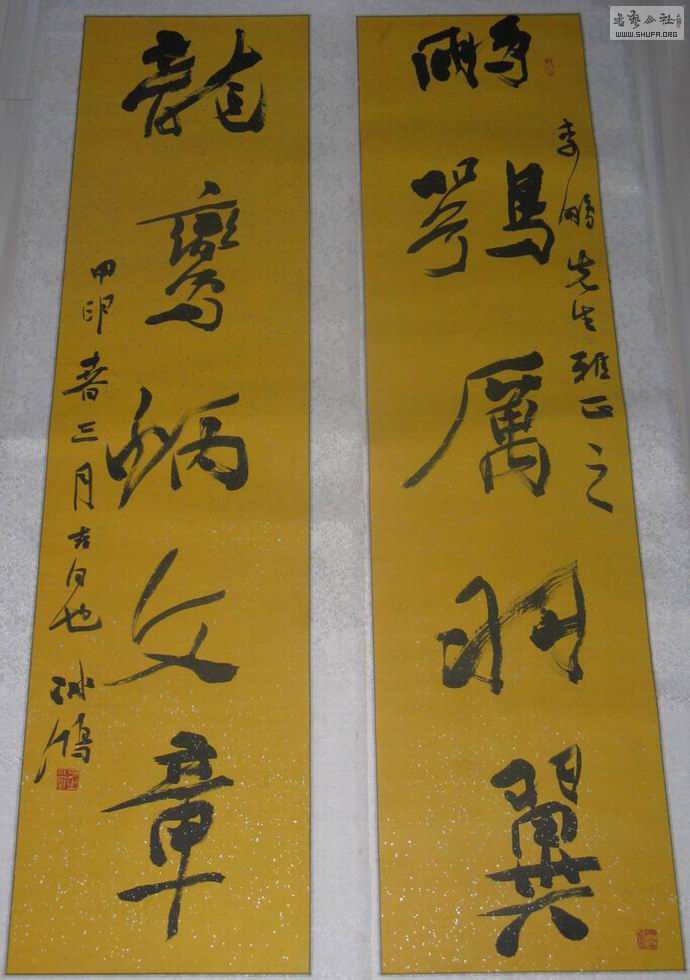 鵬鶚厲羽翼
李鵬先生雅正之
龍鸞炳文章
甲卯春三月吉日也
冰鴻
書藝公社
WWW.SHUFA.ORG